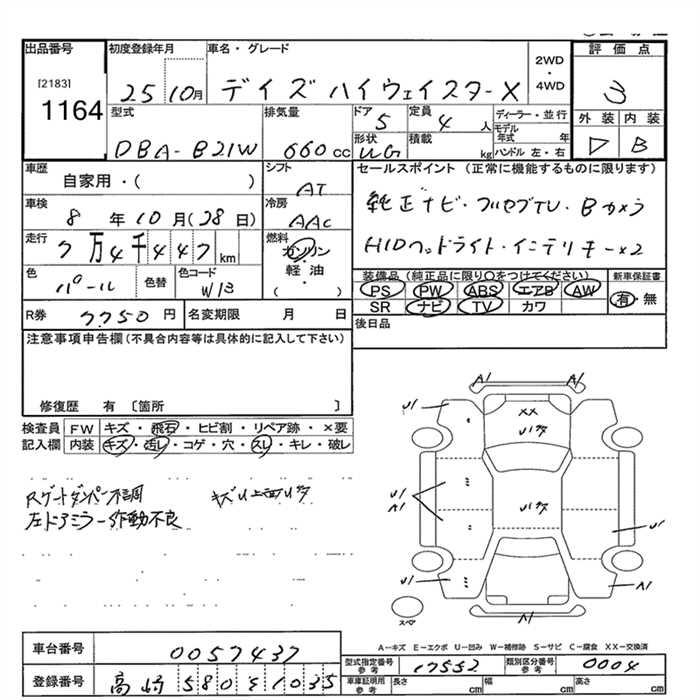 出品番号 初度登録年月 車名・グレード 評価点
[2183] 2WD・4WD
1164 25 10月 デイズ ハイウェイスターX 3
型式 排気量 ドア 定員 ディーラー・並行 外装 内装
DBA-B21W 660cc 5 4人 モデル年式 年 D B
形状 積載 kg ハンドル 左・右
車歴 シフト セールスポイント (正常に機能するものに限ります)
自家用・( ) AT
車検 冷房 純正ナビ・フルセグTV・Bカメラ
8年10月(28日) AAC
走行 燃料 HIDヘッドライト・インテリキー×2
7万4千447km ガソリン・軽油・( )
色 色替 色コード 装備品(純正品に限り○をつけてください) 新車保証書
パール W13 PS PW ABS エアB AW 有・無
SR ナビ TV カワ
R券 7750円 名変期限 月 日 後日品
注意事項申告欄(不具合内容等は具体的に記入して下さい)
修復歴 有 〔箇所 〕
検査員 FW キズ・飛石・ヒビ割・リペア跡・×要
記入欄 内装 キズ・汚レ・コゲ・穴・スレ・キレ・破レ
Rゲートダンパー不調
左ドアミラー作動不良
A1 A1
U1 XX A1
U1
A1 U1
U1 A1
A1
スペア
A-キズ E-エクボ U-凹み W-補修跡 S-サビ C-腐食 XX-交換済
車台番号 0057437
型式指定番号 参考 17552 類別区分番号 参考 0004
登録番号 高崎 580 を 1035
車庫証明用 参考 長さ cm 幅 cm 高さ cm